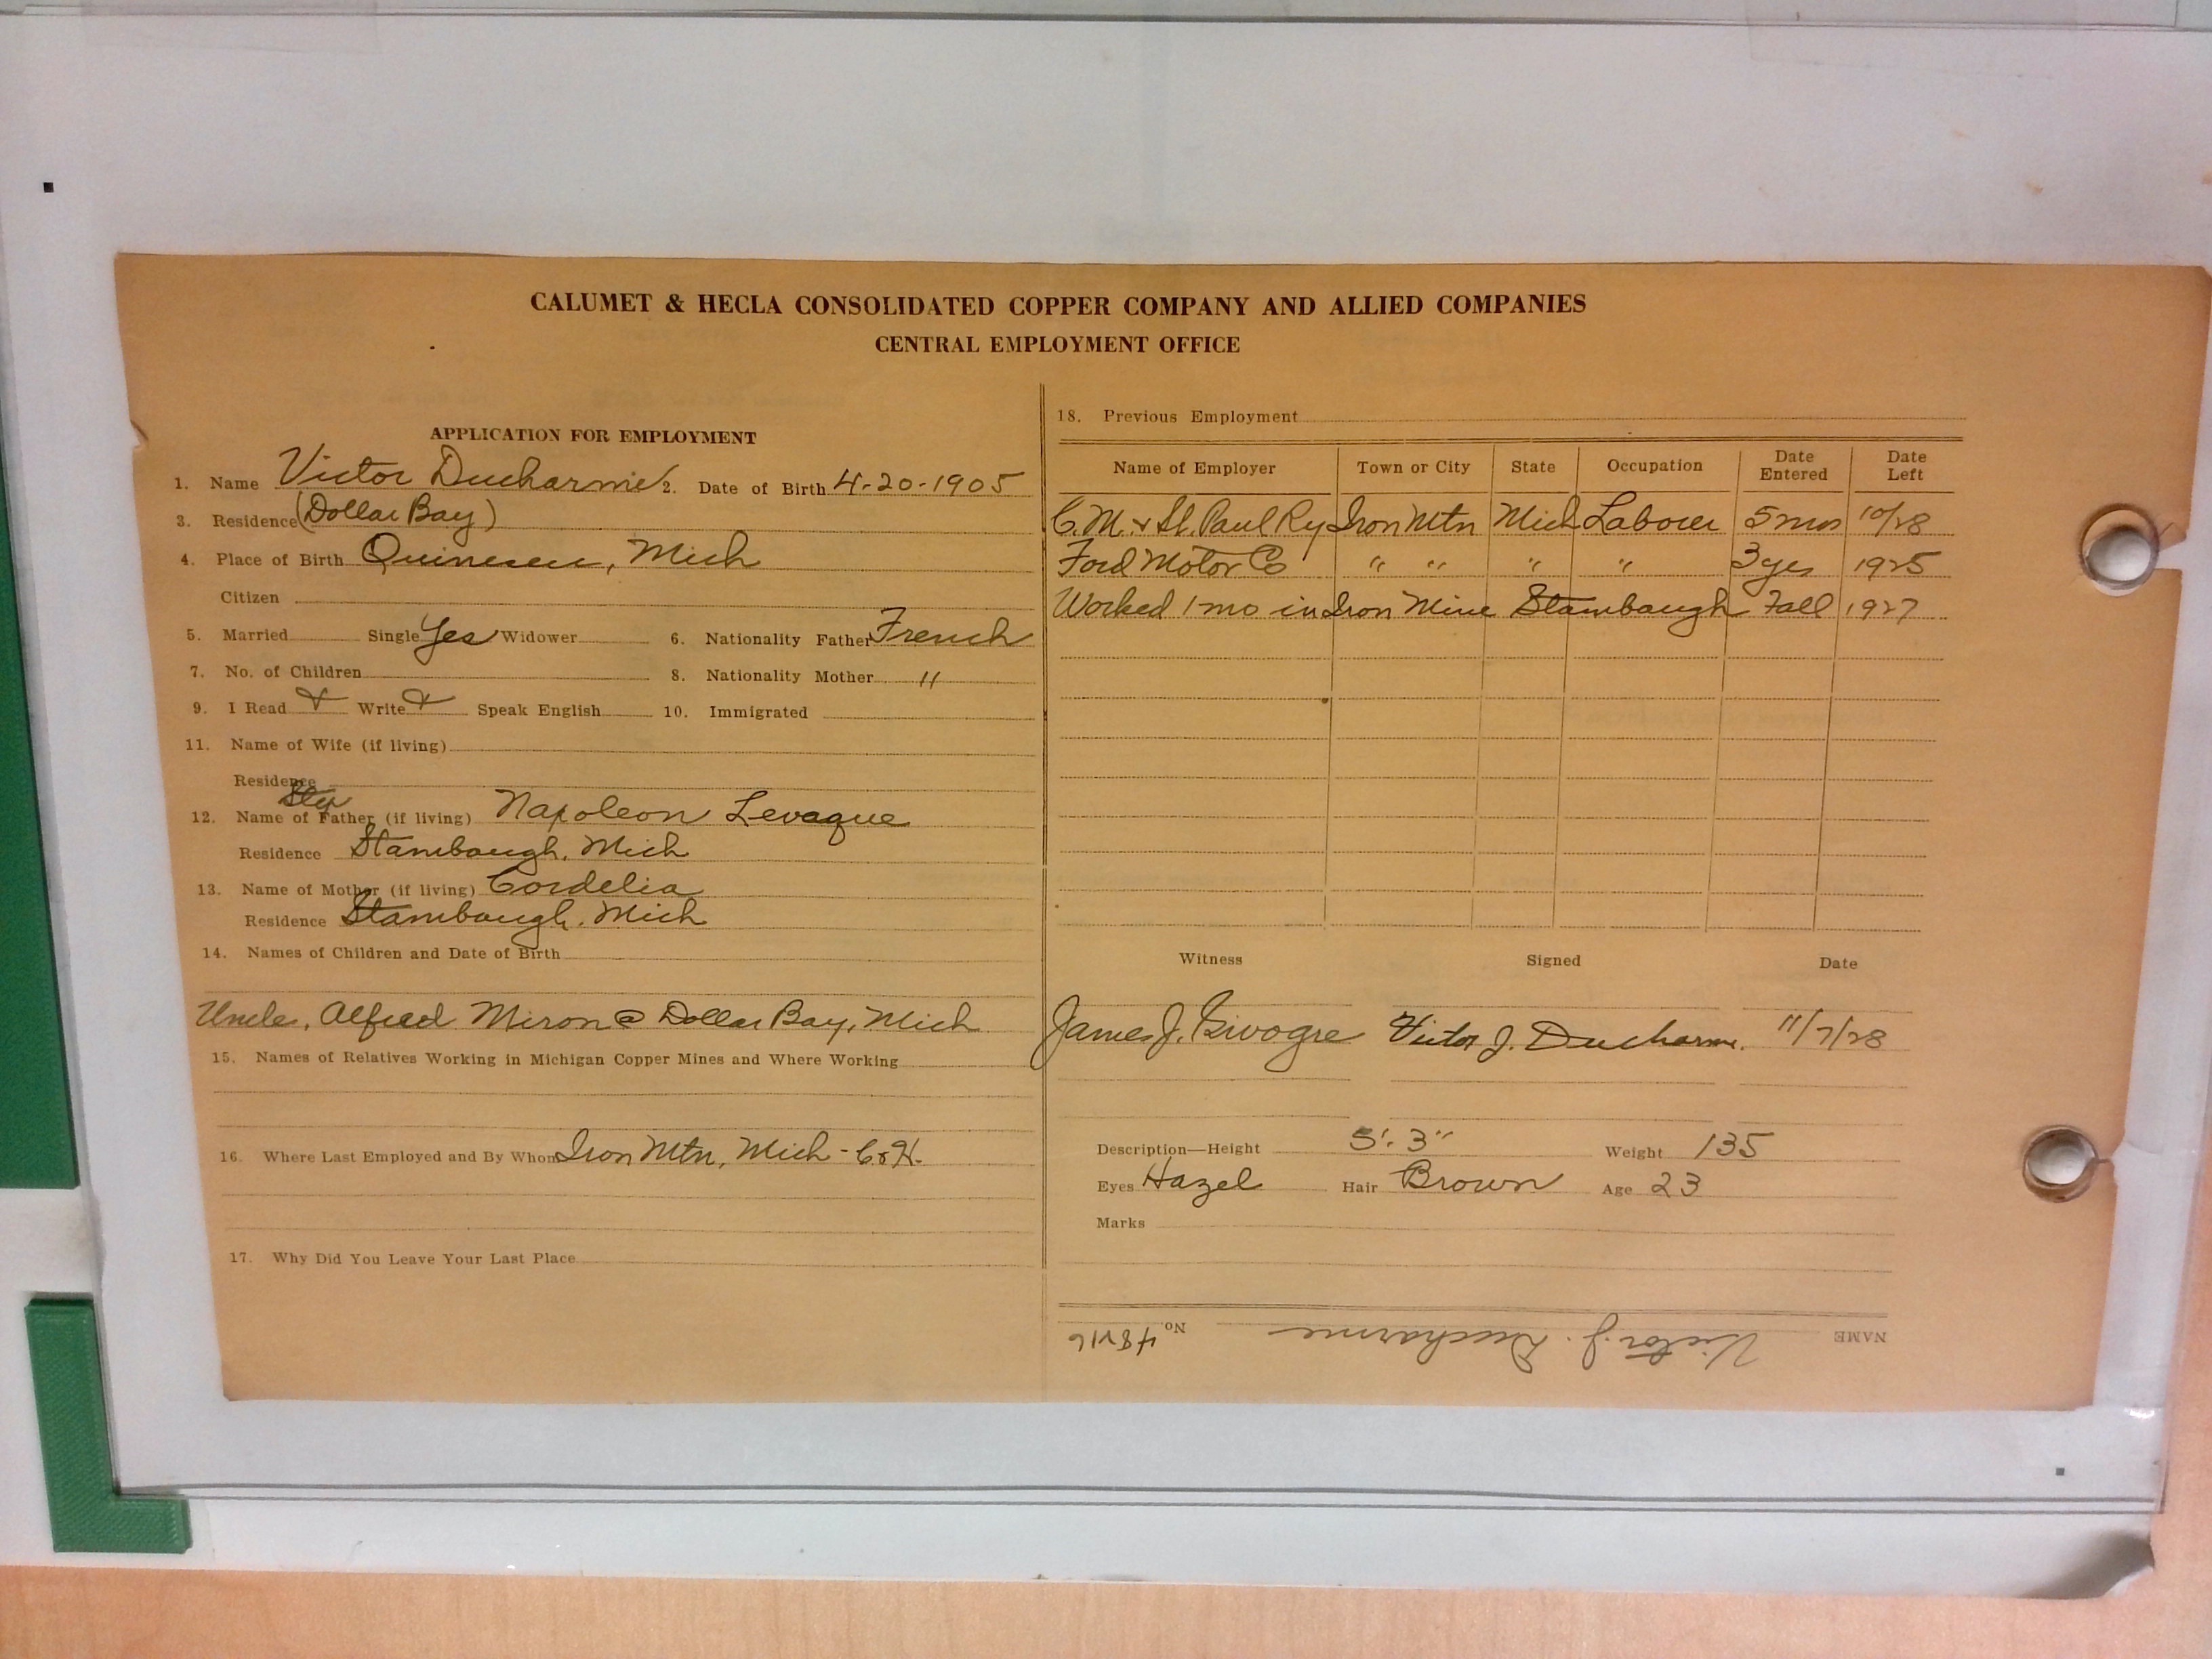 CALUMET & HECLA CONSOLIDATED COPPER COMPANY AND ALLIED COMPANIES
CENTRAL EMPLOYMENT OFFICE
APPLICATION FOR EMPLOYMENT
1. Name Victor Ducharme 2. Date of Birth 4-20-1905
3. Residence (Dollar Bay)
4. Place of Birth Quinnesec, Mich
Citizen
5. Married Single Yes Widower 6. Nationality Father French
7. No. of Children 8. Nationality Mother "
9. I Read Write Speak English 10. Immigrated
11. Name of Wife (if living)
Residence
Step
12. Name of Father (if living) Napoleon Levaque
Residence Stambaugh, Mich
13. Name of Mother (if living) Cordelia
Residence Stambaugh, Mich
14. Names of Children and Date of Birth
Uncle, Alfred Miron @ Dollar Bay, Mich
15. Names of Relatives Working in Michigan Copper Mines and Where Working
16. Where Last Employed and By Whom Iron Mtn, Mich -
17. Why Did You Leave Your Last Place
18. Previous Employment
Name of Employer Town or City State Occupation Date Entered Date Left
C. M. & St. Paul Ry Iron Mtn Mich Laborer 5 mos 10/28
Ford Motor Co " " " " 3 yrs 1925
Worked 1 mo in Iron Mine Stambaugh Fall 1927
Witness Signed Date
James J. Victor J. Ducharme. 11/7/28
Description—Height 5'-3" Weight 135
Eyes Hazel Hair Brown Age 23
Marks
NAME Victor J. Ducharme No. 48216